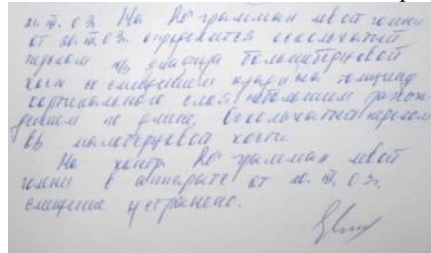 20.III.03. На Rö граммах левой голени
от 20.III.03. определяется оскольчатый
перелом н/3 диафиза большеберцовой
кости со смещением кзади на толщину
кортикального слоя небольшим захож-
дением по длине. Оскольчатый перелом
в/3 малоберцовой кости.
На контр. Rö граммах левой
голени в аппарате от 20.III.03г.
смещение устранено.